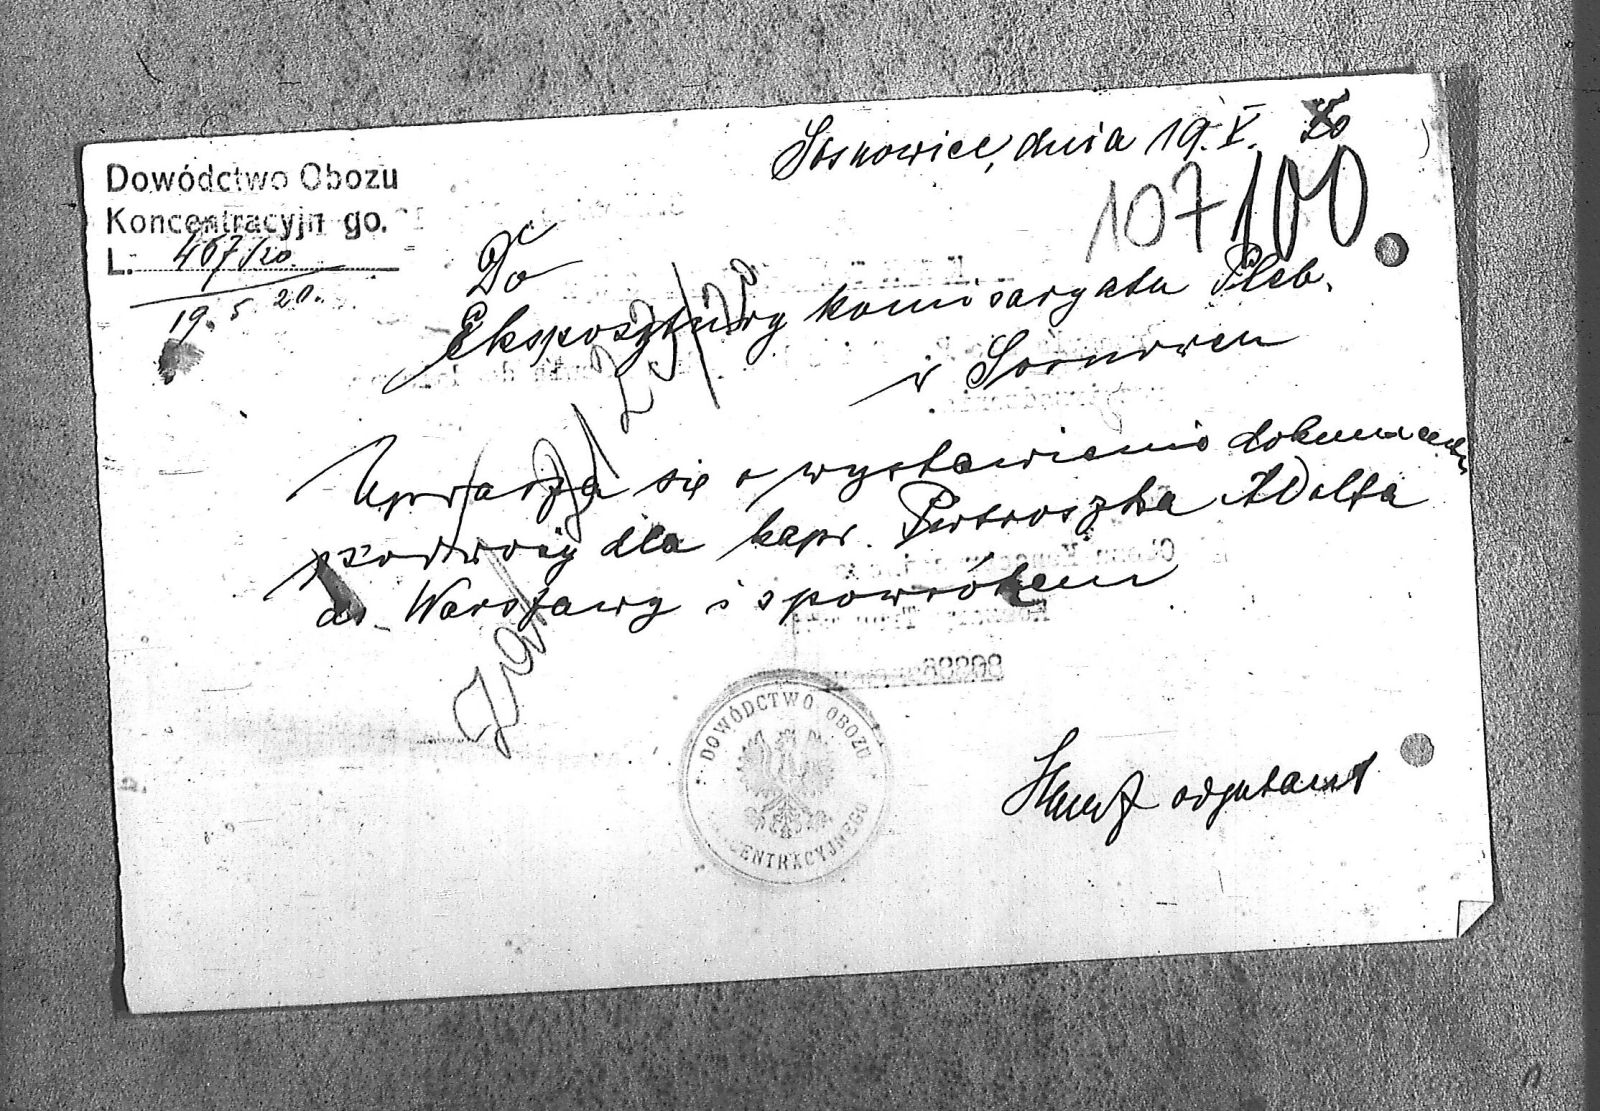 Sosnowiec, dnia 19. V. 20
107/100.
Dowództwo Obozu
Koncentracyjn go.
L. 467/20
19. 5. 20.
Do
Ekspozytury komisaryatu Pleb.
w Sosnowcu
Uprasza się o wystawienie dokumentu
podróży dla kapr. Pietroszka Adolfa
do Warszawy i spowrotem
DOWÓDCTWO OBOZU
CENTRACYJNEGO
adjutant